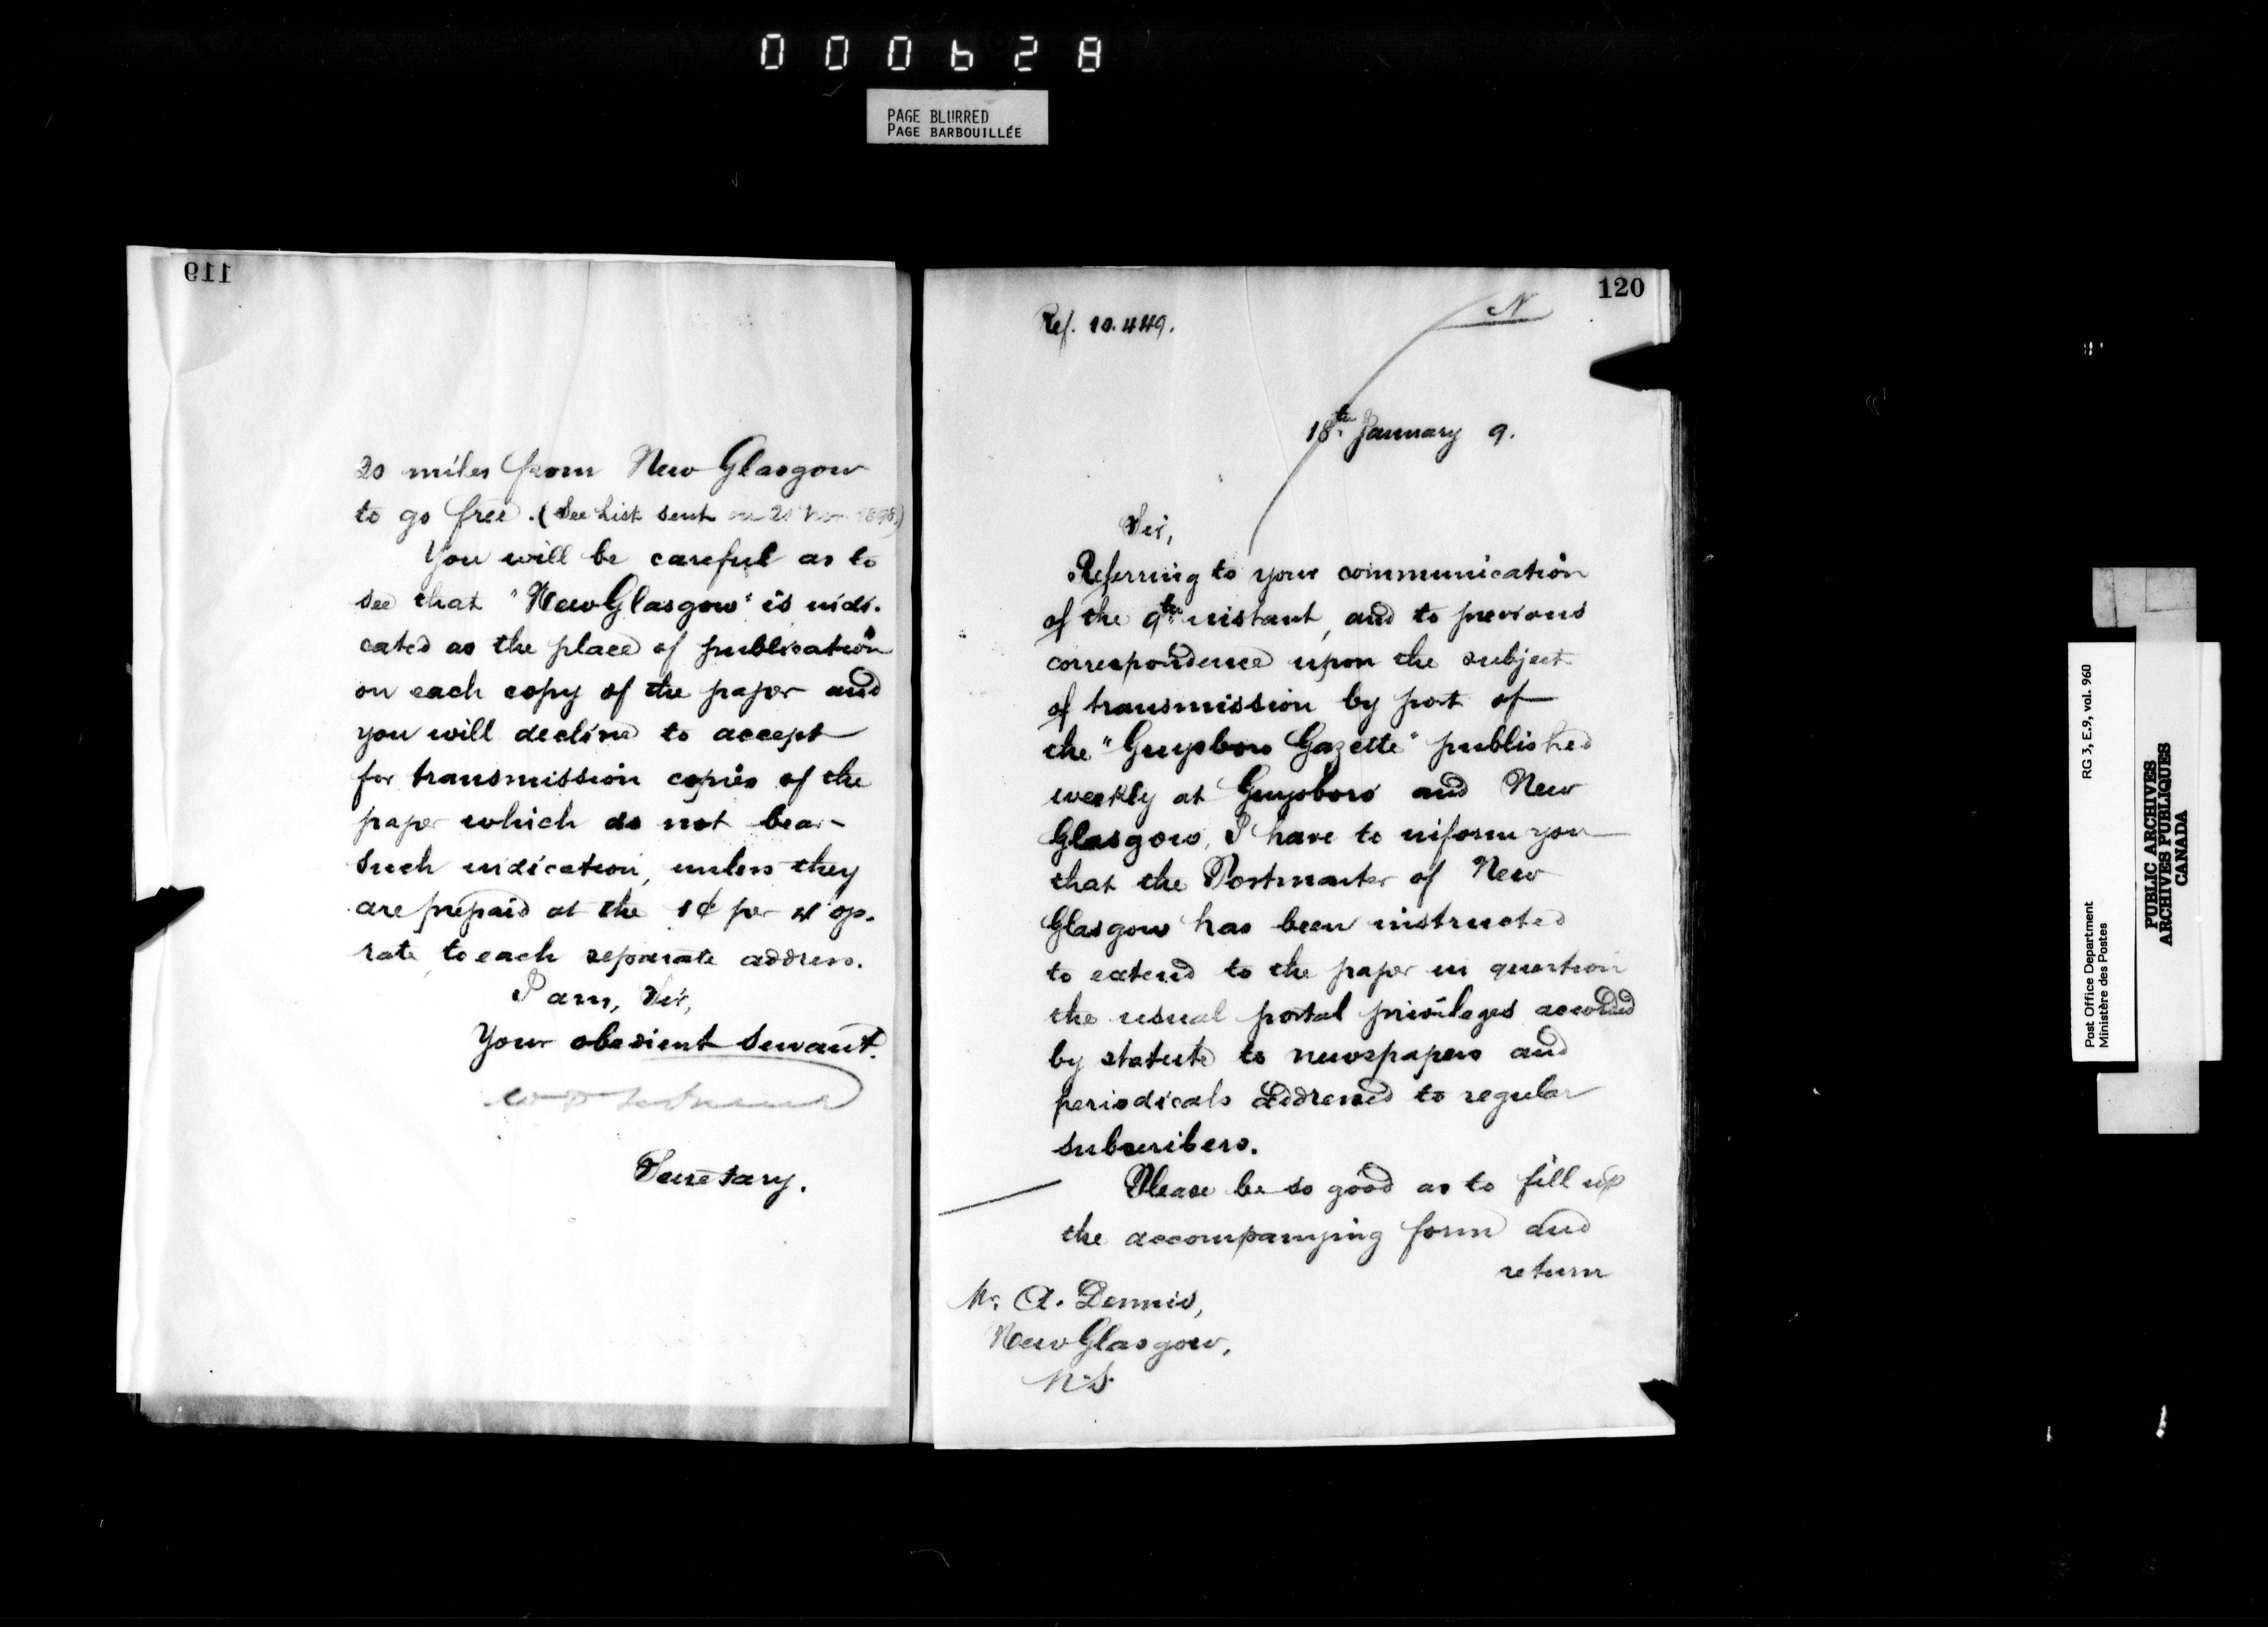 000628
PAGE BLURRED
PAGE BARBOUILLÉE
119
20 miles from New Glasgow
to go free. (See List sent on 21 Nov 1898)
You will be careful as to
see that "New Glasgow" is indi-
cated as the place of publication
on each copy of the paper and
you will decline to accept
for transmission copies of the
paper which do not bear
such indication, unless they
are prepaid at the 1¢ per 4 oz.
rate to each separate address.
I am, Sir,
Your obedient Servant.
Secretary.
120
N
Ref. 10.449.
18th January 9.
Sir,
Referring to your communication
of the 9th instant, and to previous
correspondence upon the subject
of transmission by post of
the "Guysboro Gazette" published
weekly at Guysboro and New
Glasgow, I have to inform you
that the Postmaster of New
Glasgow has been instructed
to extend to the paper in question
the usual postal privileges accorded
by statute to newspapers and
periodicals addressed to regular
subscribers.
Please be so good as to fill up
the accompanying form and
return
Mr. A. Dennis,
New Glasgow,
N.S.
Post Office Department
Ministère des Postes
RG 3, E.9, vol. 960
PUBLIC ARCHIVES
ARCHIVES PUBLIQUES
CANADA